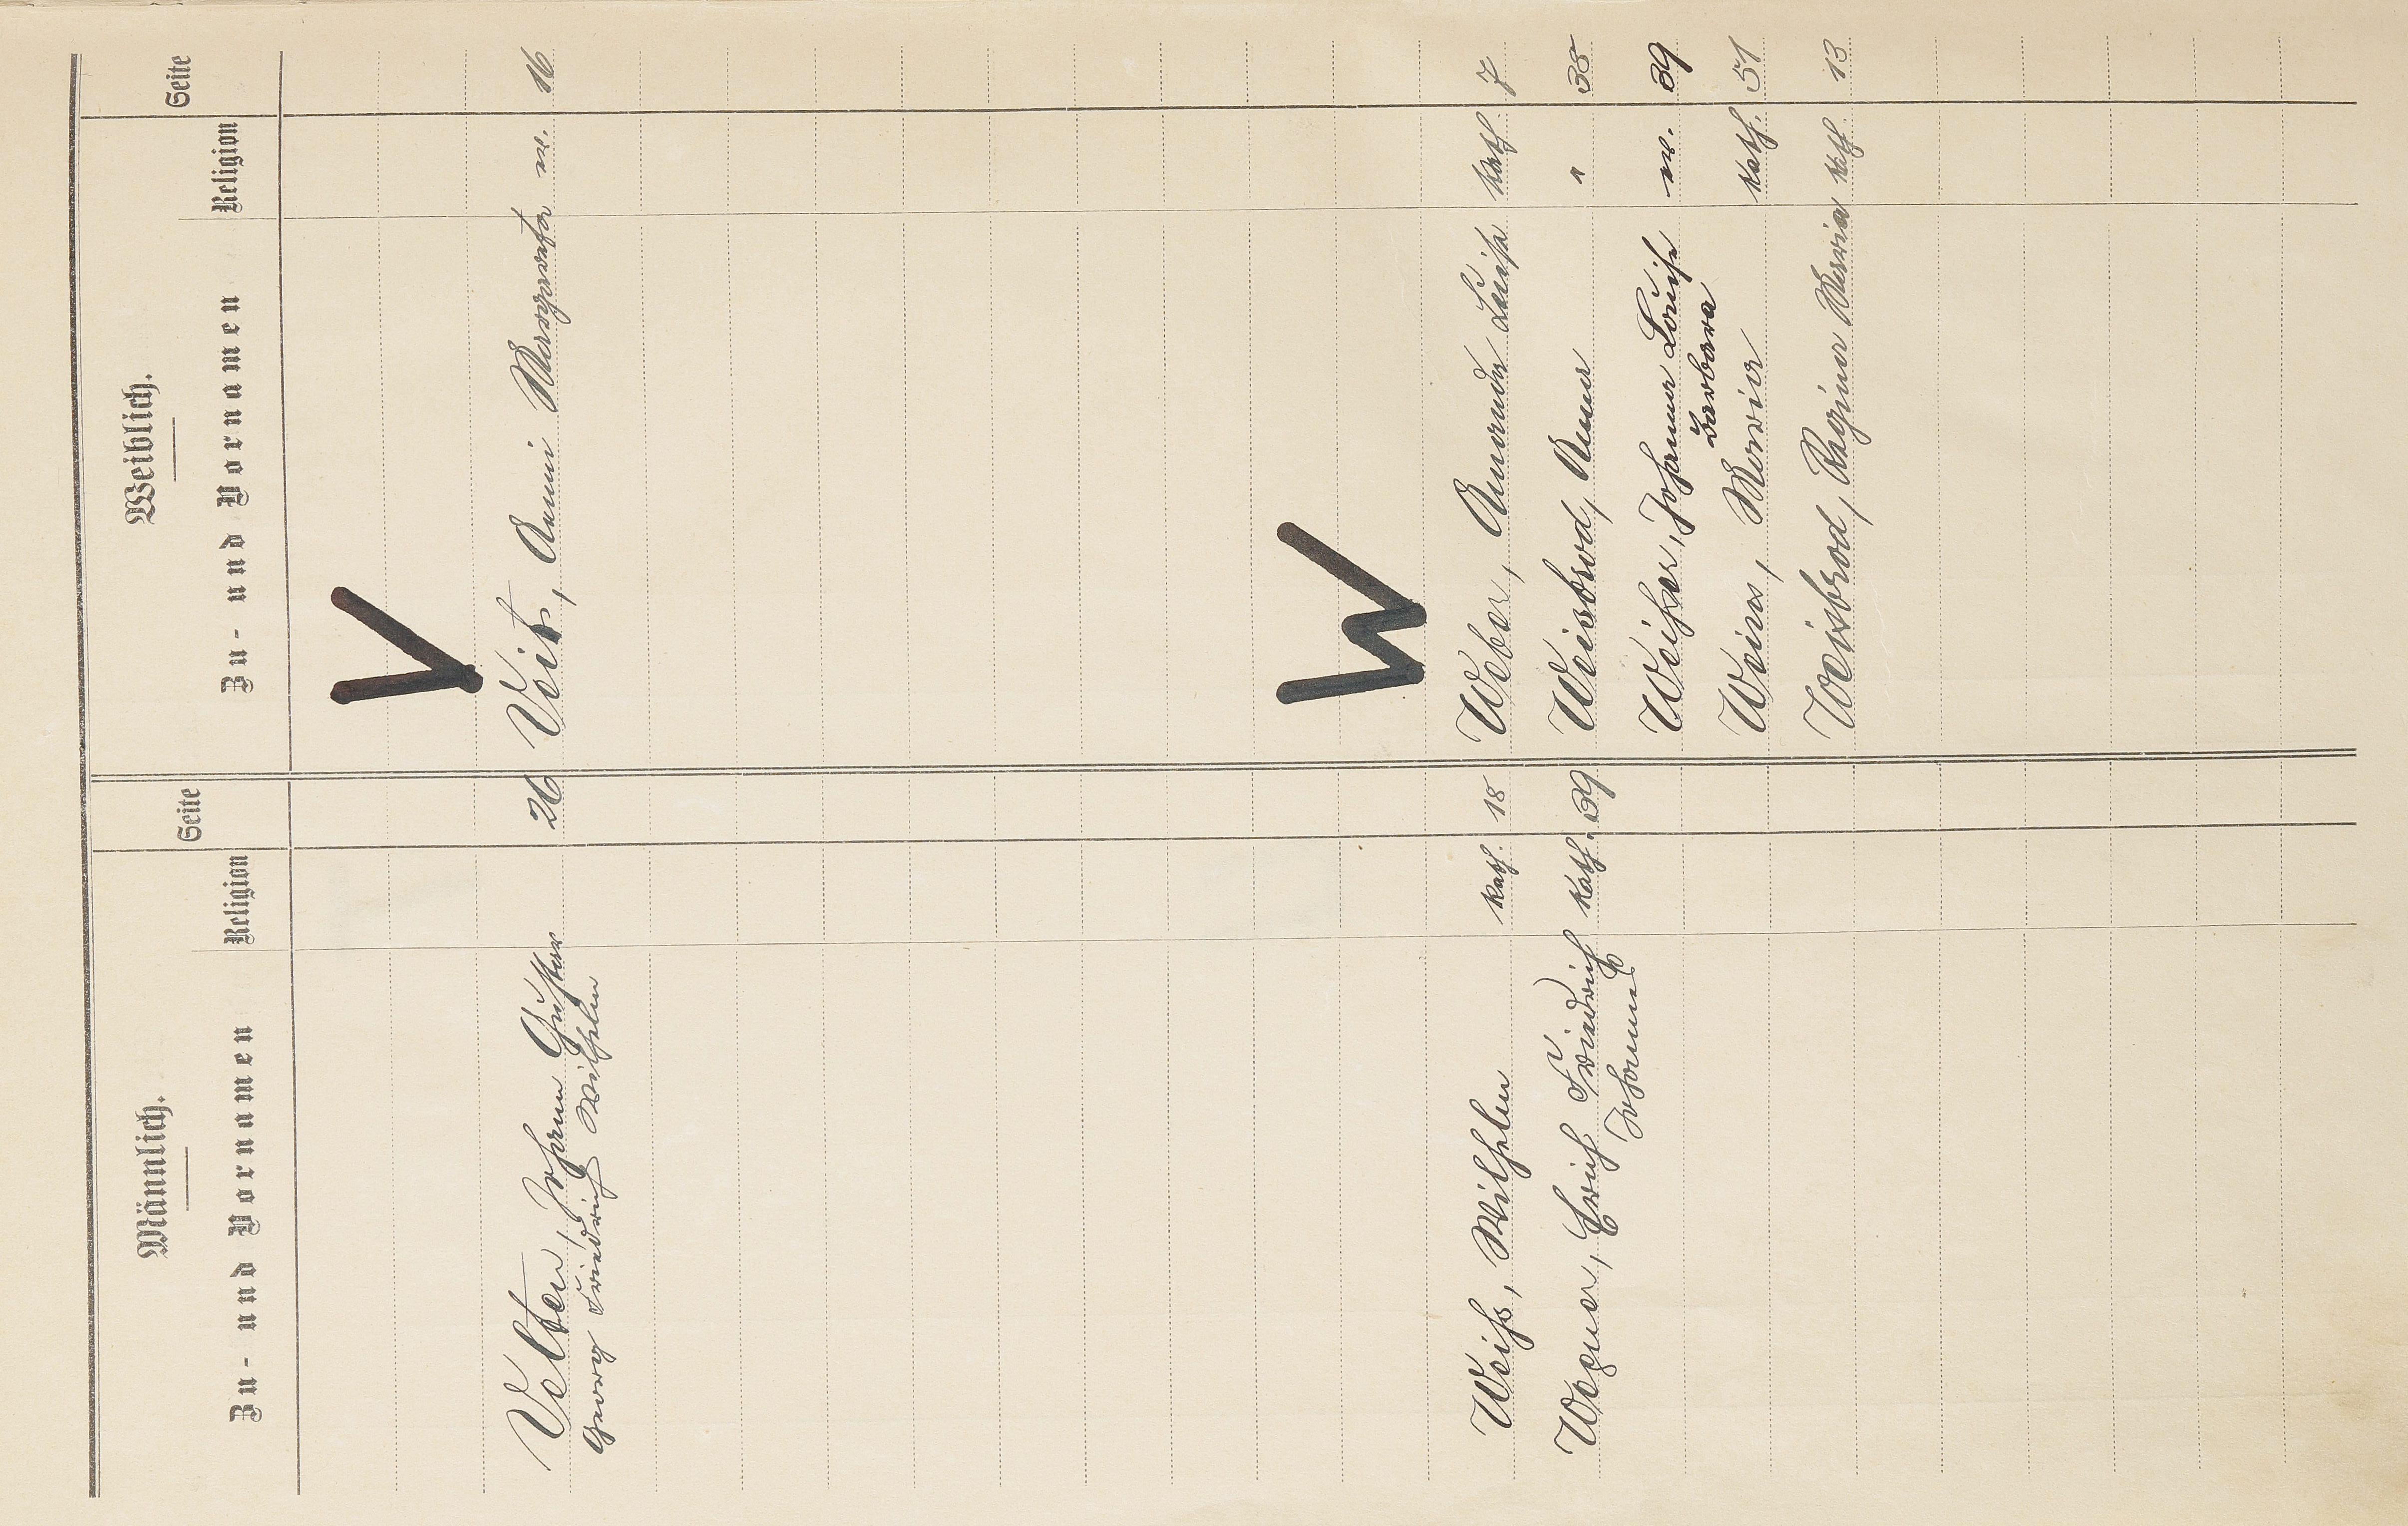 Männlich.
Zu- und Vornamen
Religion
Seite
Weiblich.
Zu- und Vornamen
Religion
Seite
V
Velten, Johann Gustav 26
Georg Friedrich Wilhelm
Veit, Anni Margareta ev. 16
W
Weiß, Wilhelm kath. 18
Wegner, Erich Friedrich kath. 39
Johannes
Weber, Amanda Luise kath. 7
Weisbrod, Anna " 38
Weiher, Johanna Louise ev. 39
Barbara
Weins, Maria kath. 51
Weisbrod, Regina Maria kath. 13